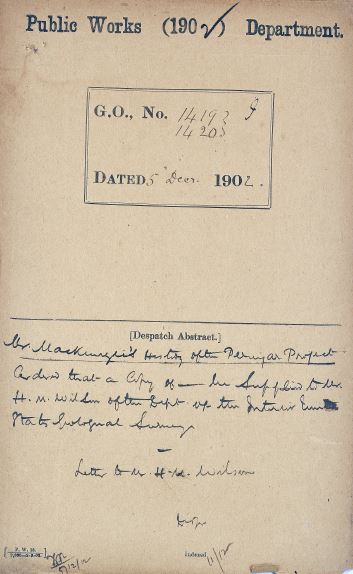 Public Works (1902) Department.
G.O., No. 14193 J
14203
DATED 5 Decr. 1902.
[Despatch Abstract.]
Mr Mackenzie's History of the Periyar Project
Ordered that a Copy of — be Supplied to Mr.
H. M. Wilson of the Dept. of the Interior
States Geological Survey
Letter to Mr. H. M. Wilson
P. W. D.
Indexed